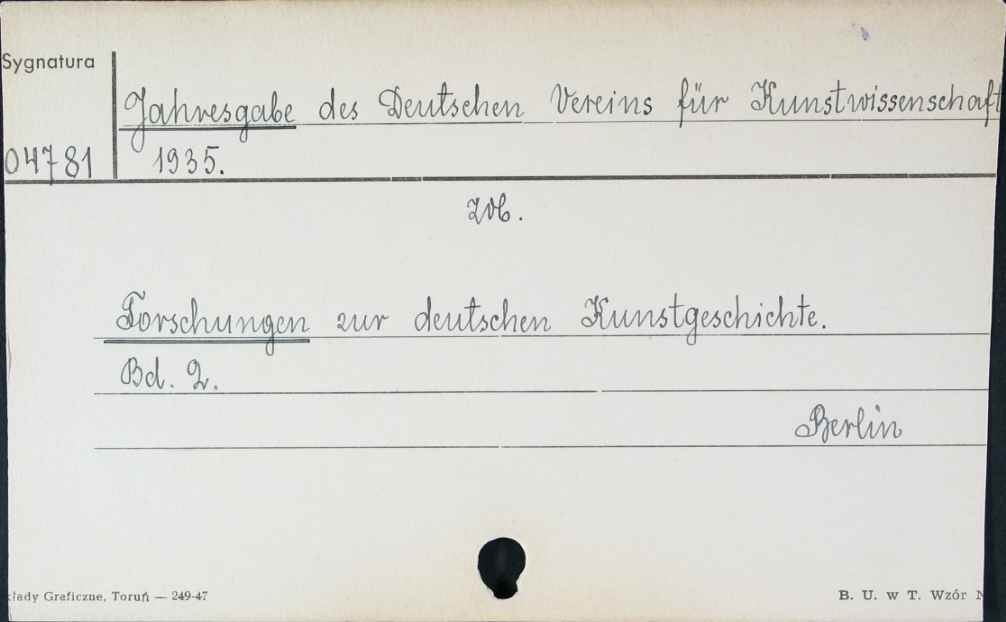 Sygnatura
Jahresgabe des Deutschen Vereins für Kunstwissenschaft
04781 1935.
zob.
Forschungen zur deutschen Kunstgeschichte.
Bd. 2.
Berlin
łady Graficzne, Toruń — 249-47
B. U. w T. Wzór N